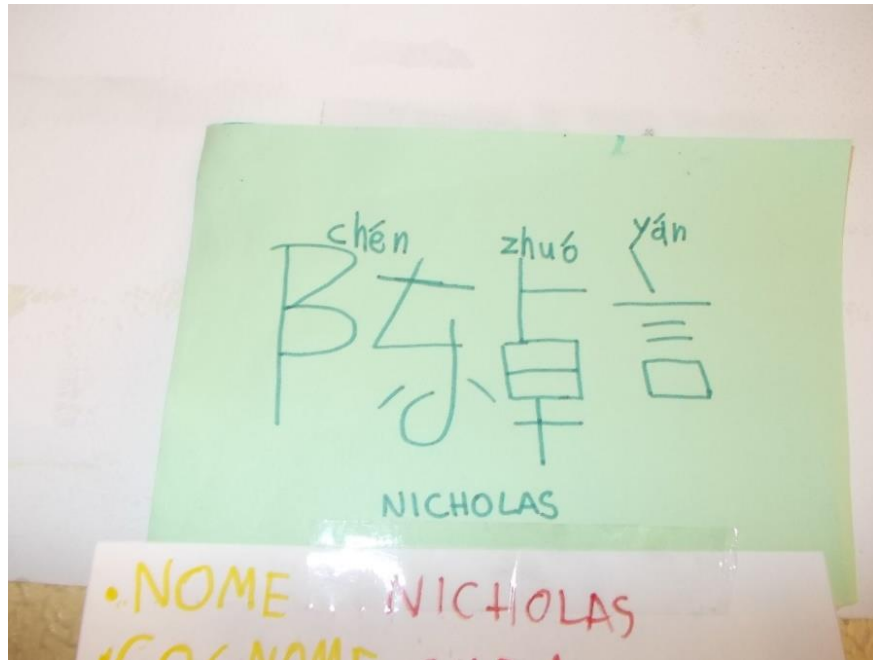 chén zhuó yán
陈卓言
NICHOLAS
• NOME NICHOLAS
• COGNOME